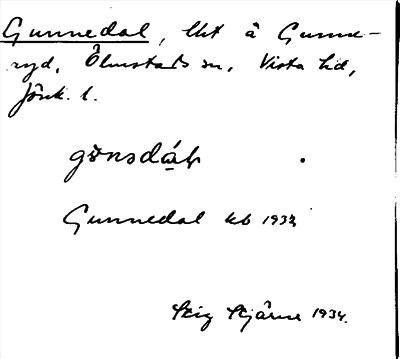 Gunnedal, lht å Gunne-
ryd, Ölmstads sn, Vista hd,
Jönk. l.
Gunnedal kb 1934
Stig Stjärne 1934.